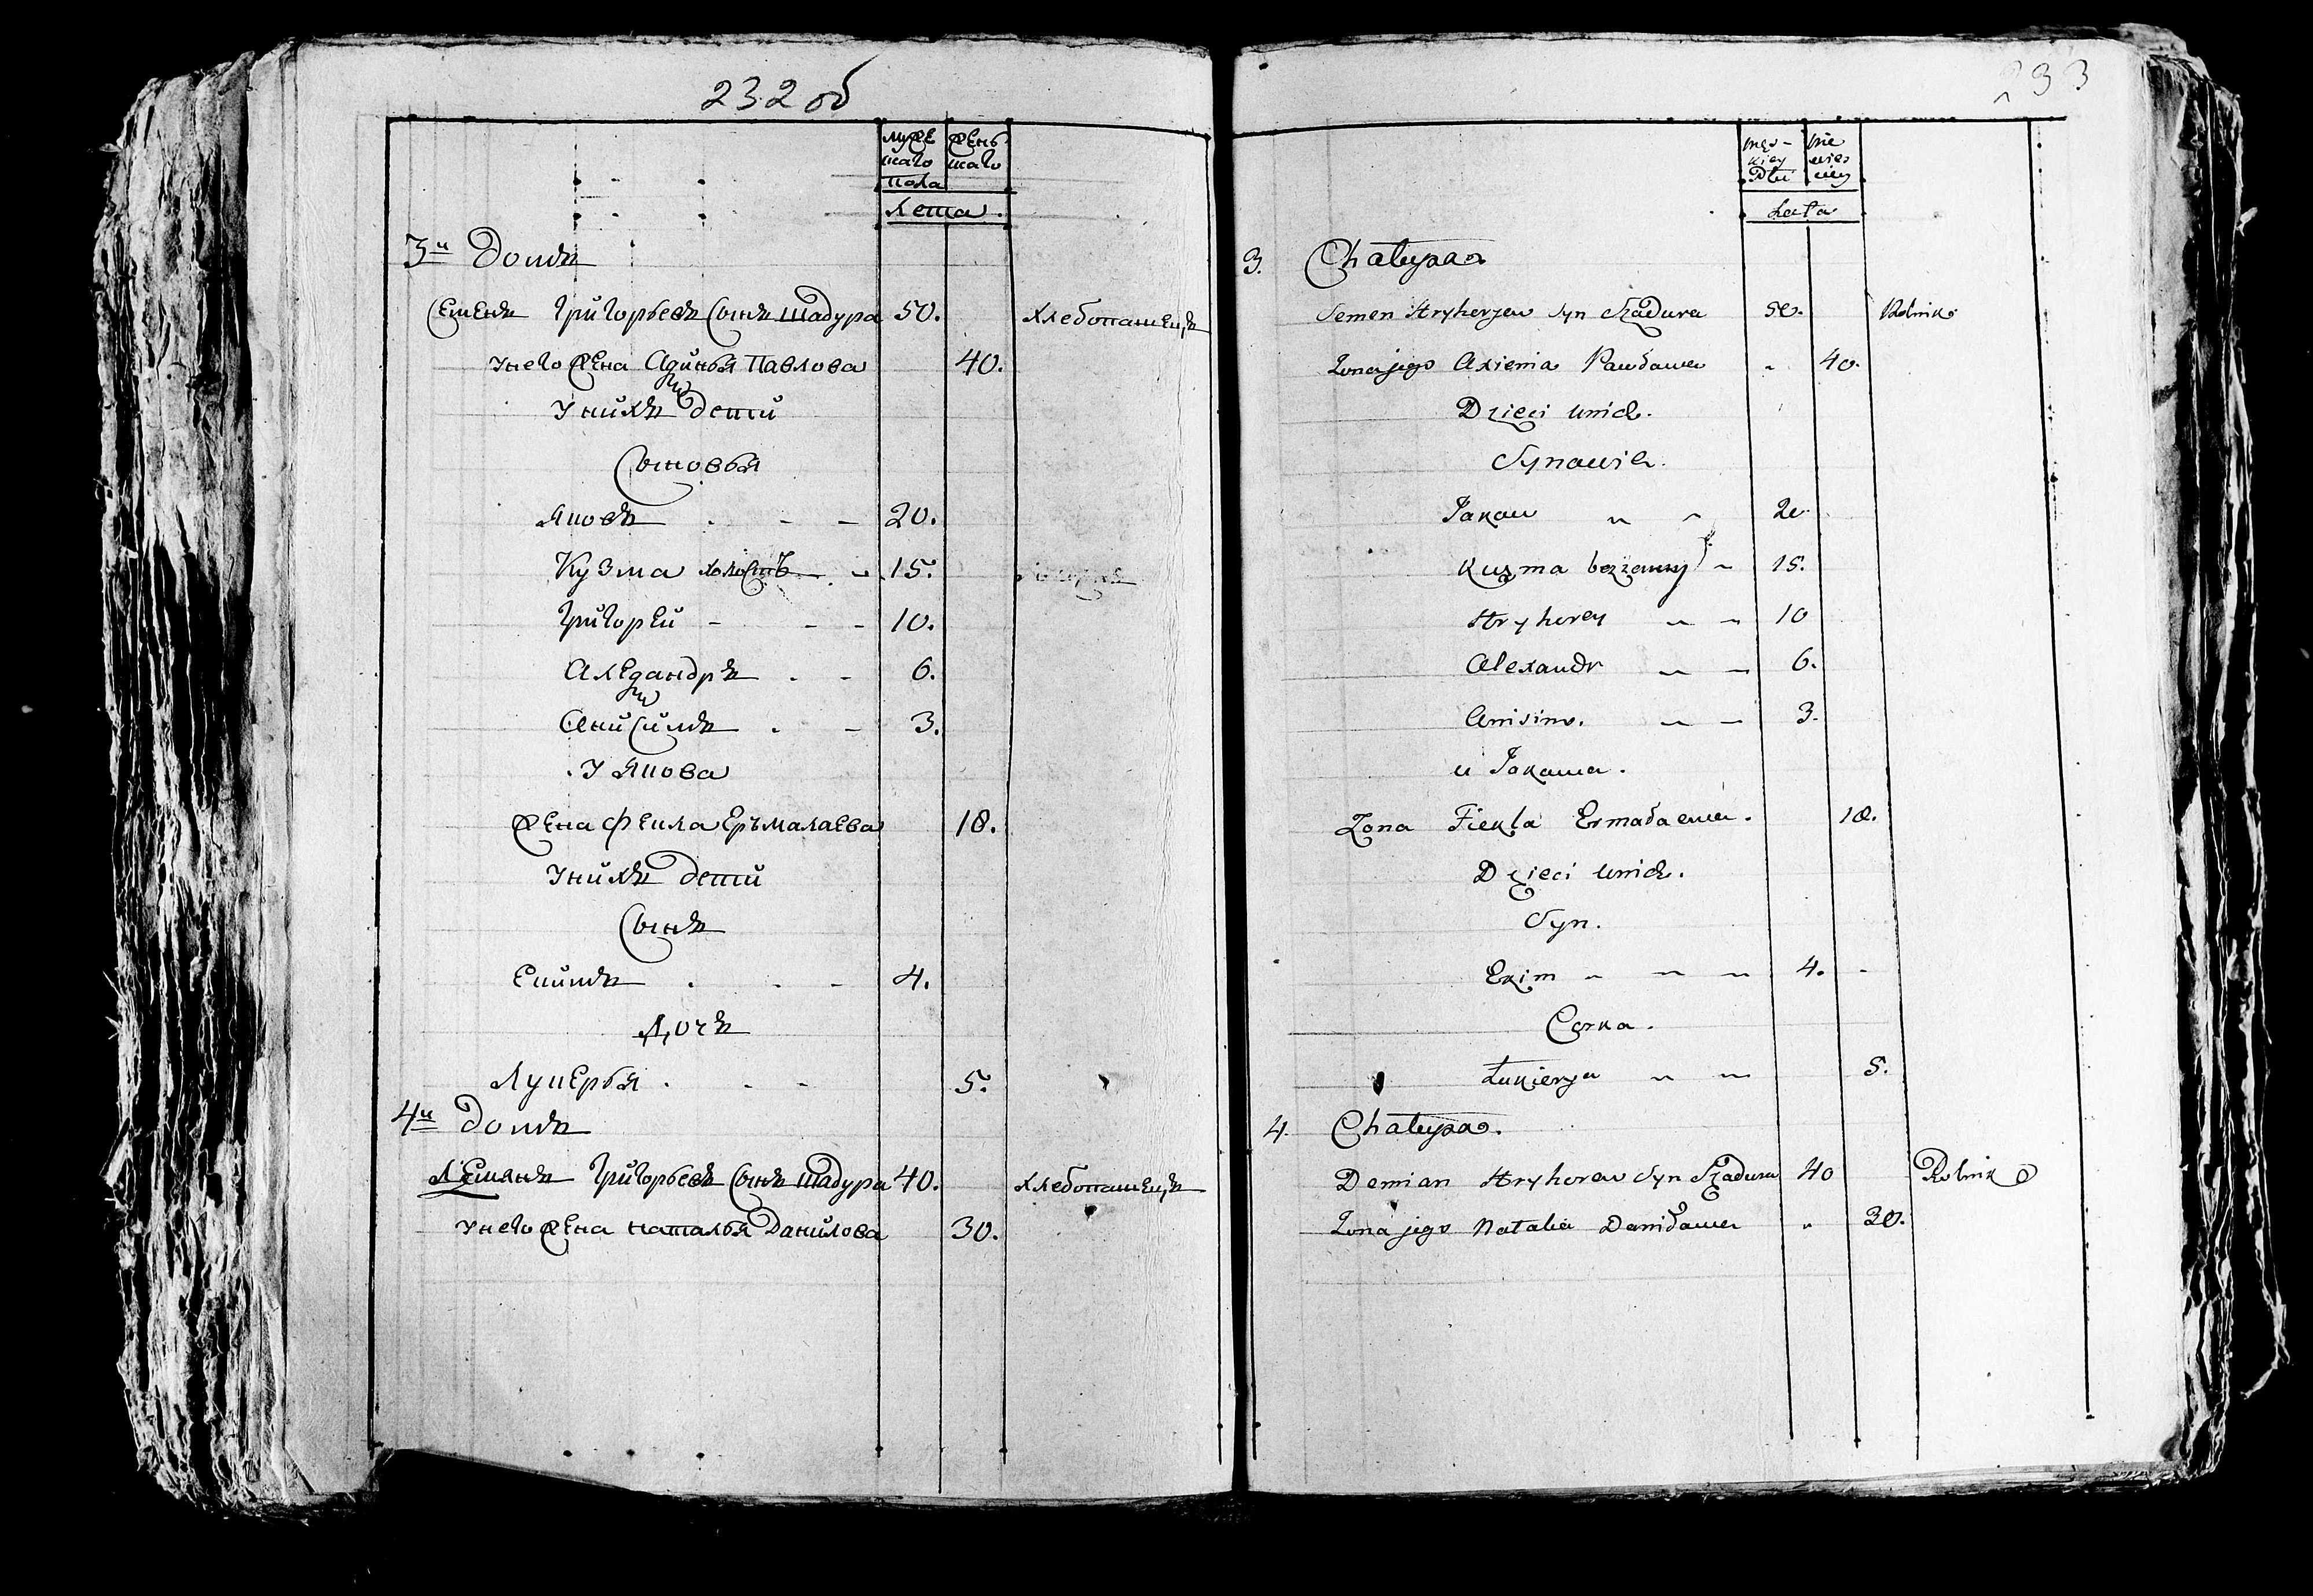 232 об
мужескаго женьскаго
пола
лета
3й домъ
Семенъ Григорьевъ сынъ Шадура 50. хлебопашецъ
У него жена Аѯинья Павлова 40.
У нихъ дети
Сыновья
Яковъ 20.
Кузма холостъ 15.
Григорей 10.
Алеѯандръ 6.
Анисимъ 3.
У Якова
жена Фекла Еръмалаева 18.
У нихъ дети
Сынъ
Екимъ 4.
Дочъ
Лукерья 5.
4й домъ
Демянъ Григорьевъ сынъ Шадура 40. хлебопашецъ
У него жена Наталья Данилова 30.
233
Męskiey Płci
Lata
3. Chałupa
Semen Hryheryew Syn Szadura 50. Rolnik
Żona jego Axienia Pawłowa 40.
Dzieci u nich.
Synowie.
Jakow 20
Kuzma bezżenny 15.
Hryhorey 10
Alexandr 6.
Anisim. 3.
u Jakowa.
Żona Fiekla Ermałaewa. 18.
Dzieci u nich.
Syn.
Ekim 4.
Corka.
Łukierya 5.
4. Chałupa.
Demian Hryhorew Syn Szadura 40 Rolnik
Żona jego Natalia Daniłowa 30.